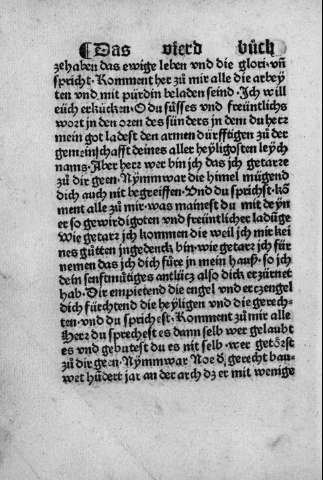 Das vierd bůch
zehaben das ewige leben vnd die glori · vñ
spricht · Komment her zů mir alle die arbey
ten vnd mit pürdin beladen seind · Ich will
eüch erkücken · O du süsses vnd freüntlichs
wort in den oren des sünders in dem du herr
mein got ladest den armen dürfftigen zů der
gemeinschafft deines aller heyligosten leych
nams · Aber herr wer bin ich das ich getarre
zů dir geen · Nymmwar die himel mügend
dich auch nit begreiffen · Vnd du sprichst · kõ
ment alle zů mir · was mainest du mit deyn
er so gewirdigoten vnd freüntlicher ladũge
Wie getarr ich kommen die weil ich mir kei
nes gůtten ingedenck bin · wie getarz ich für
nemen das ich dich füre in mein hauß · so ich
dein senfftmůtiges antlücz also dick erzürnet
hab · Dir empietend die engel vnd erczengel
dich fürchtend die heyligen vnd die gerech-
ten · vnd du sprichest · Komment zů mir alle
Herr du sprechest es dann selb wer gelaubt
es vnd gebutest du es nit selb · wer getörst
zů dir geen · Nymmwar Noe d gerecht bau-
wet hũdert jar an der arch dz er mit wenige